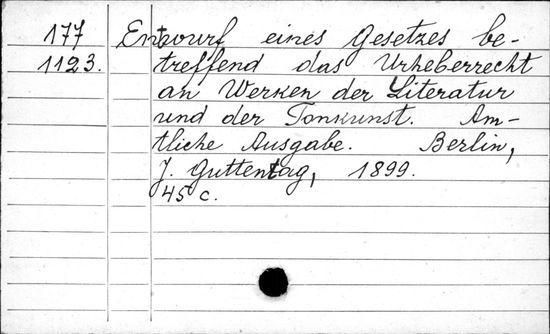 177 Entwurf eines Gesetzes be-
1123. treffend das Urheberrecht
an Werken der Literatur
und der Tonkunst. Am-
tliche Ausgabe. Berlin,
J. Guttentag, 1899.
45 c.